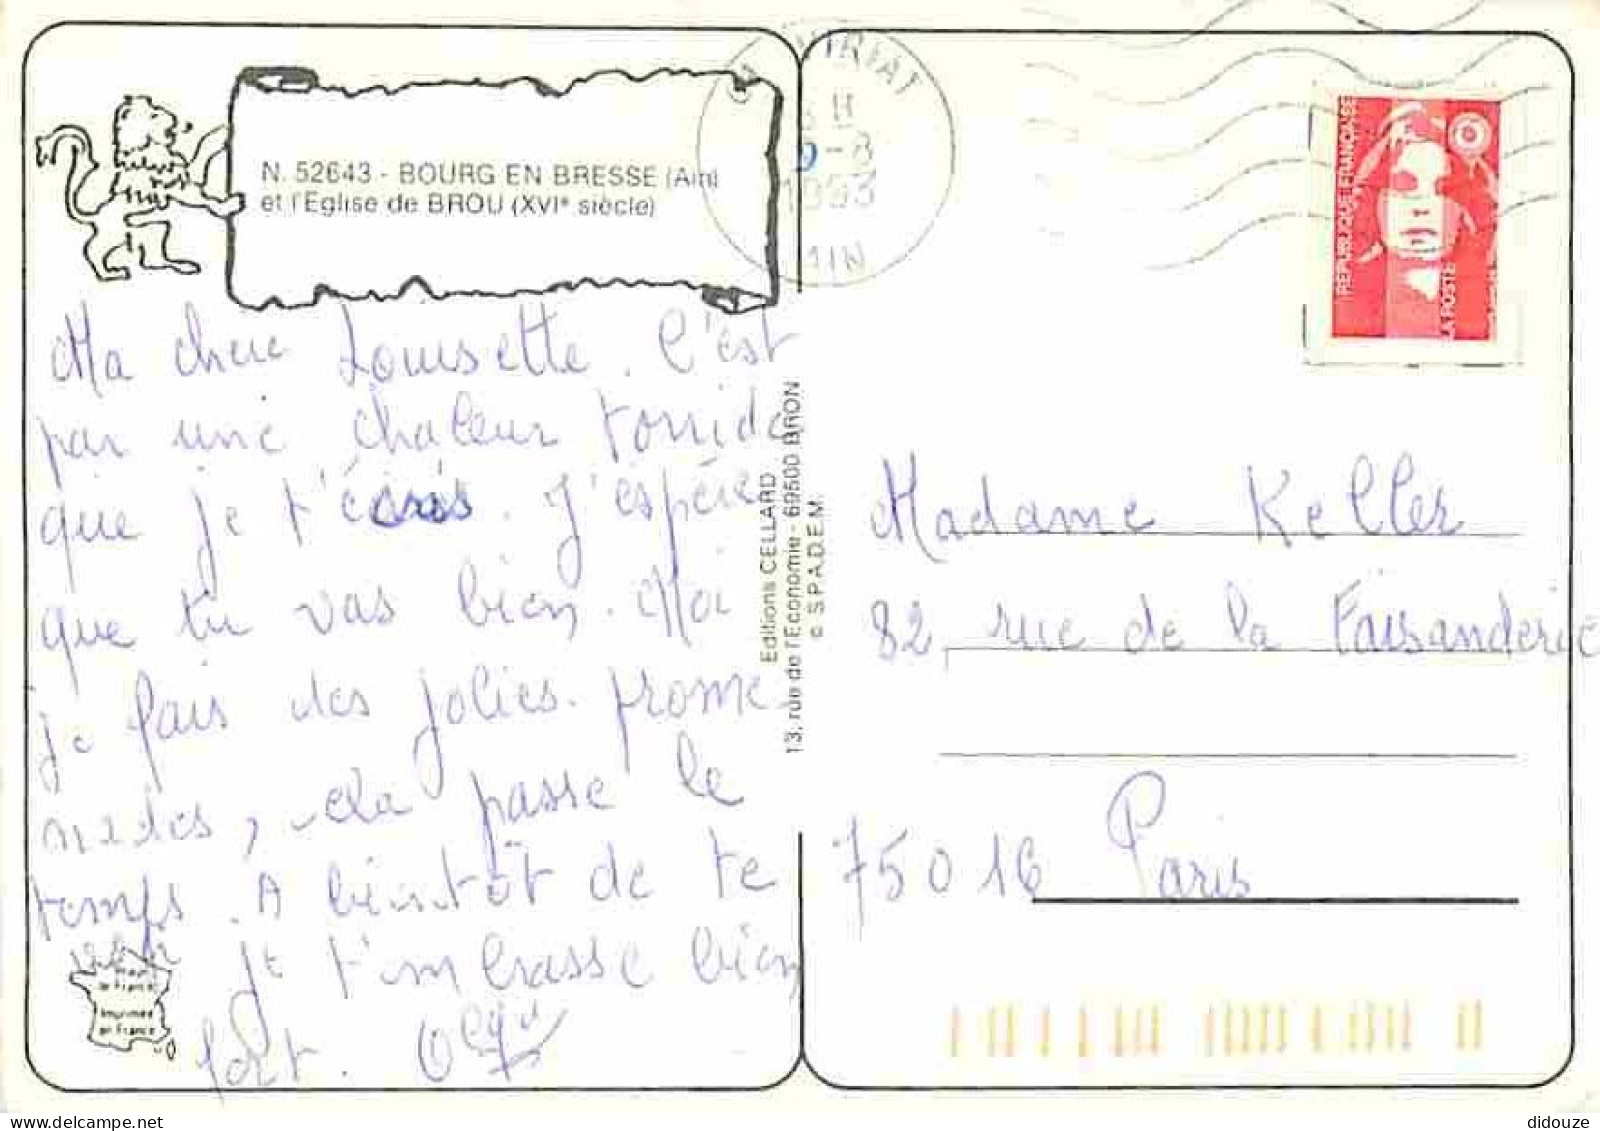 N. 52643 - BOURG EN BRESSE (Ain)
et l'Eglise de BROU (XVIe siècle)
Ma chere Louisette. C'est
par une chaleur torride
que je t'écris. J'espère
que tu vas bien. Moi
je fais des jolies prome-
nades, cela passe le
temps. A bientôt de te
voir je t'embrasse bien
fort. Olga
de France
Imprimée
en France
Editions CELLARD
13, rue de l'Economie - 69500 BRON
© S.P.A.D.E.M.
VIRIAT
8 H
9-8
1993
AIN
REPUBLIQUE FRANÇAISE
LA POSTE
Madame Keller
82 rue de la Faisanderie
75016 Paris
didouze